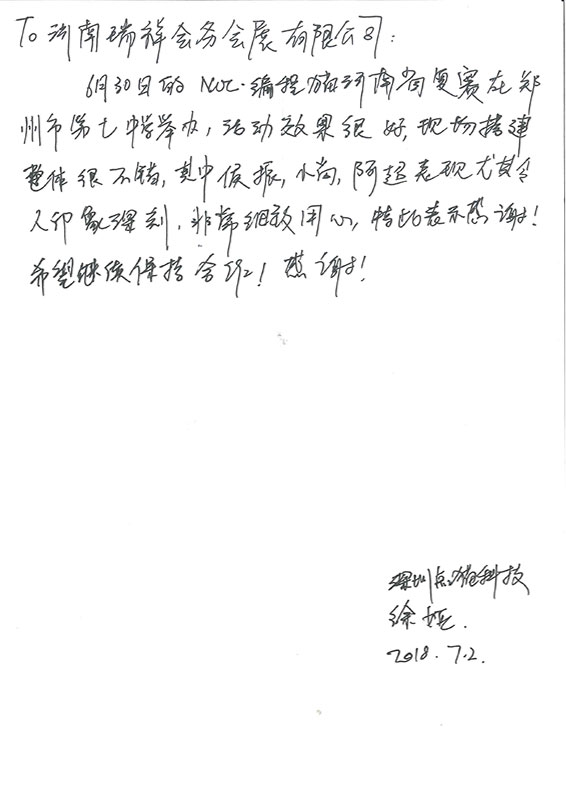 To 河南瑞祥会务会展有限公司:
6月30日的 NOC·编程猫河南省复赛在郑
州市第七中学举办,活动效果很好,现场搭建
整体很不错,其中侯振,小尚,阿超表现尤其令
人印象深刻,非常细致用心,特此表示感谢!
希望继续保持合作!感谢!
深圳点猫科技
徐
2018.7.2.